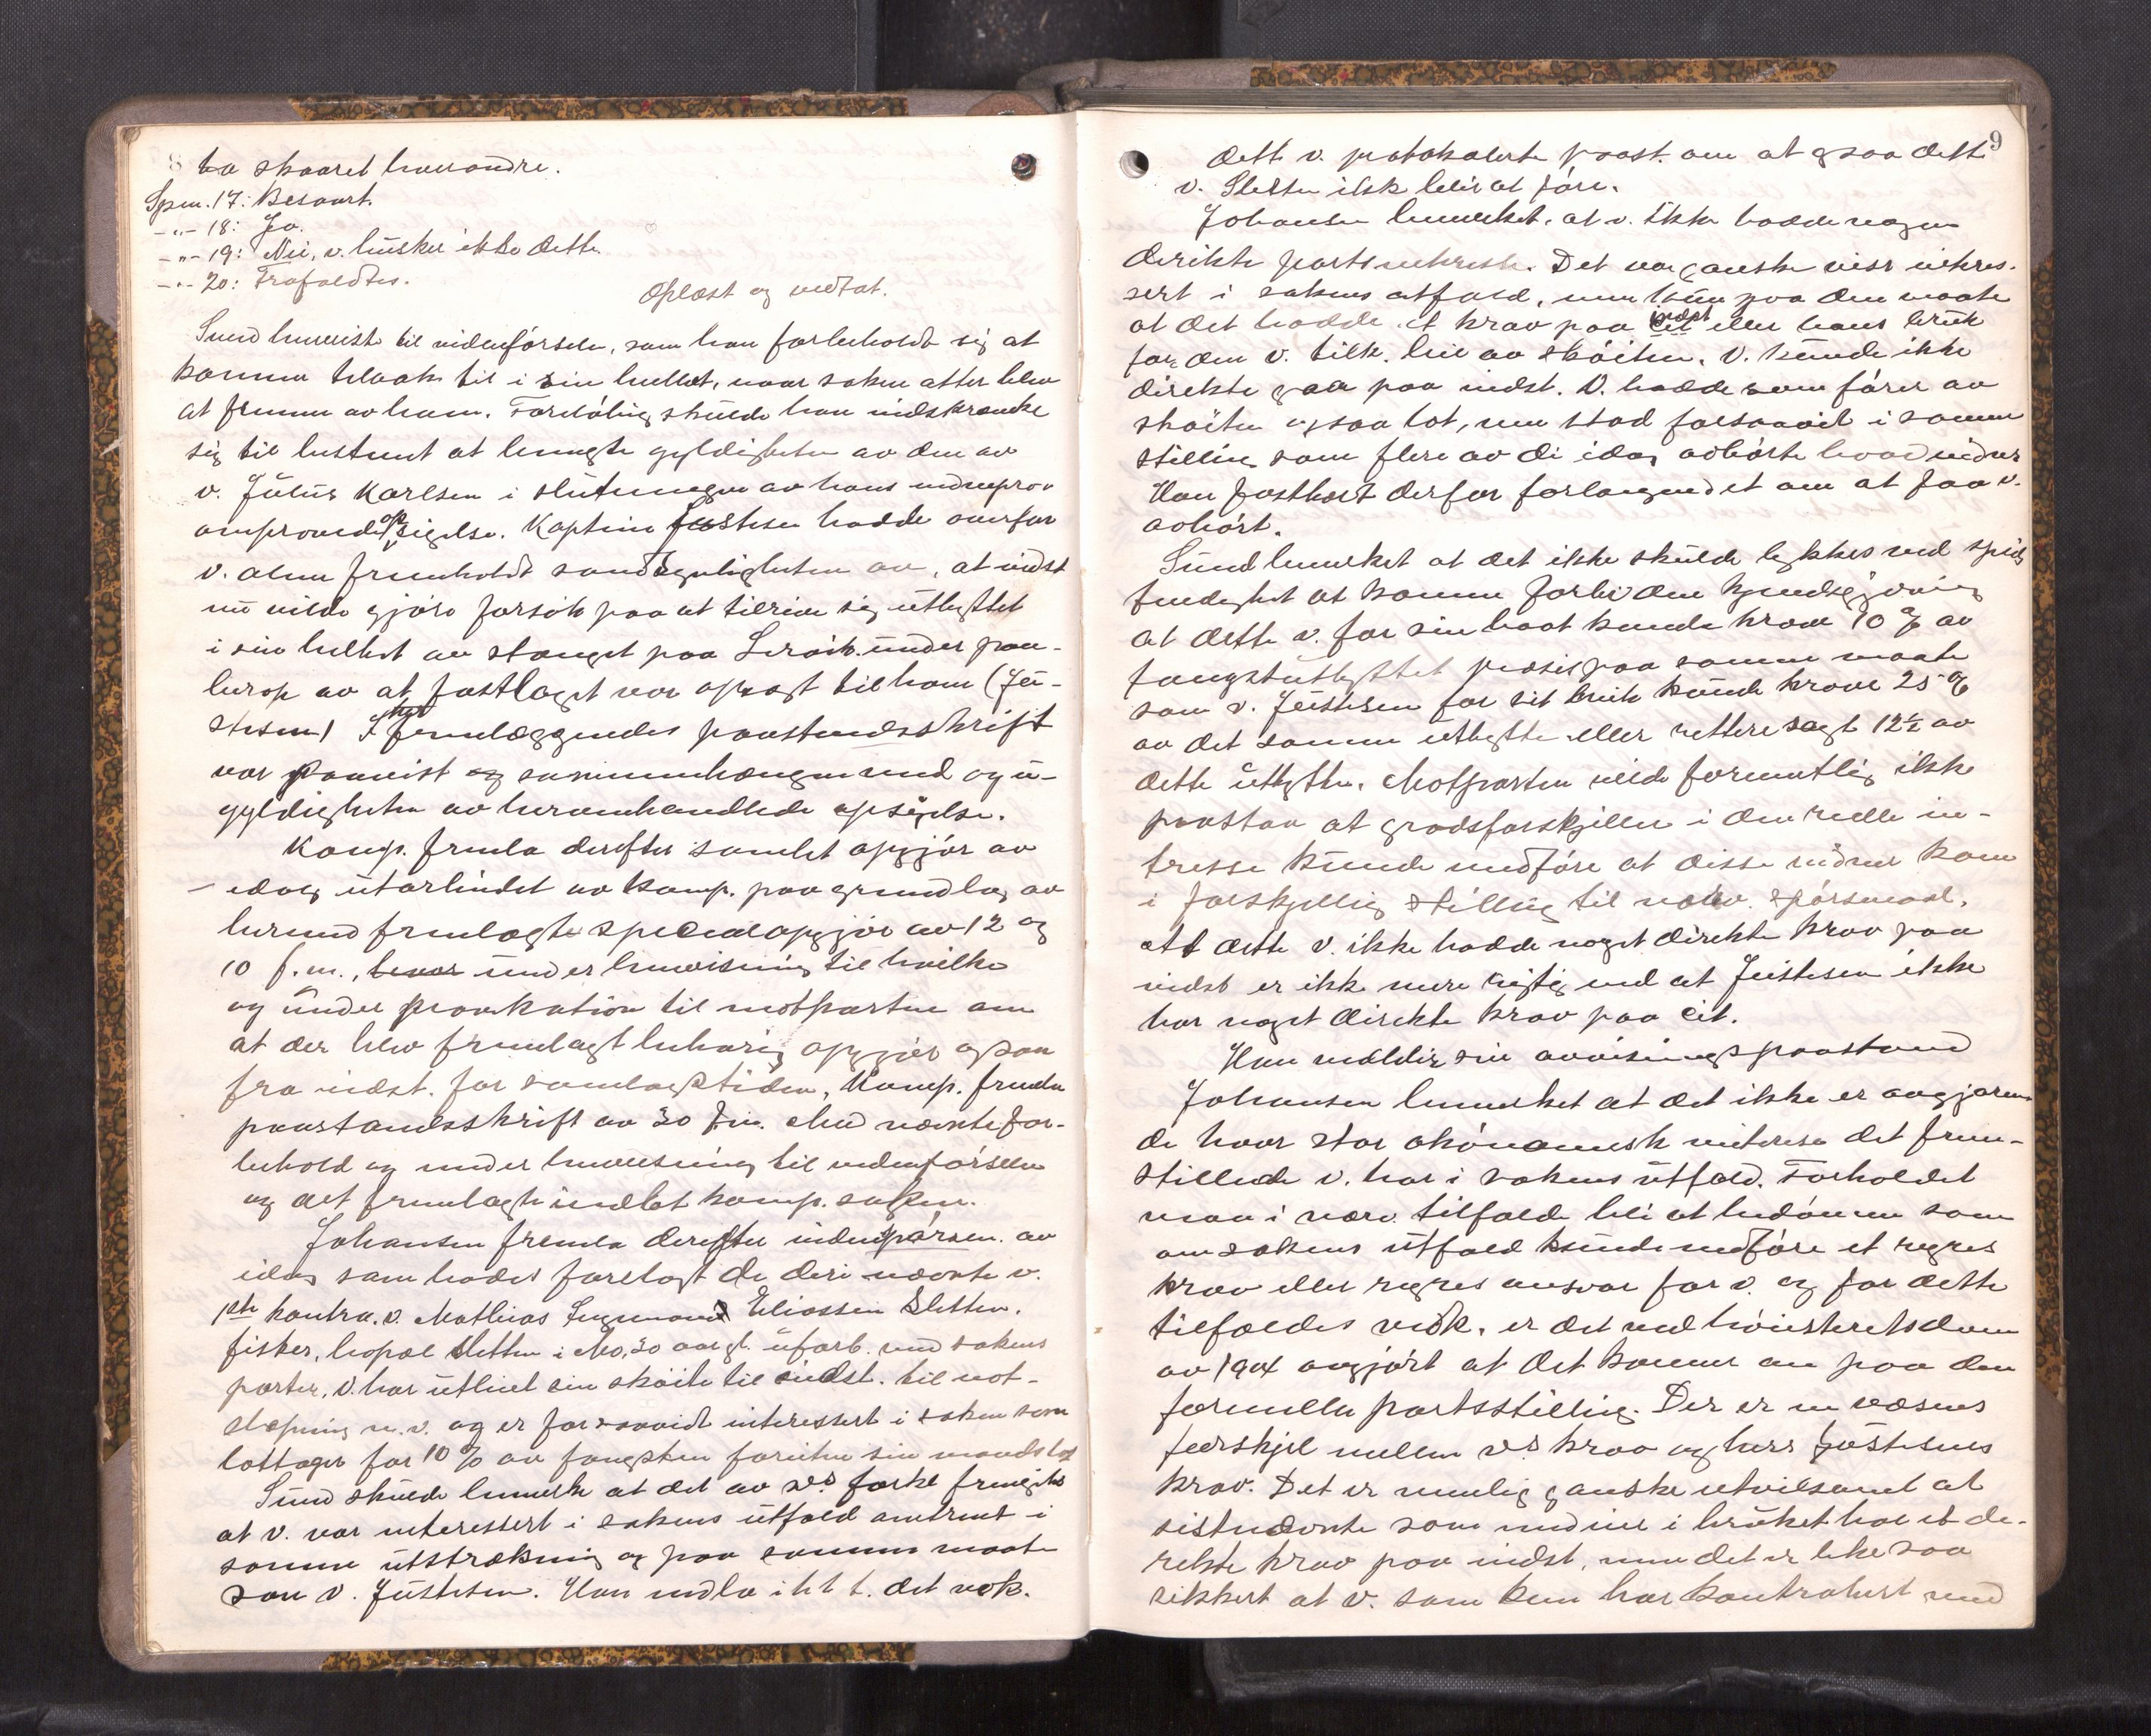 8 ta skaaret hverandre.
Spm. 17: Besvart.
-"- 18: Ja.
-"- 19: Nei, v. husker ikke dette.
-"- 20: Frafaldtes.
Oplæst og vedtat.
Sund henviste til vidneførselen, som han forbeholdt sig at
komme tilbake til i sin helhet, naar saken atter blev
at fremme av ham. Foreløbig skulde han indskrænke
sig til bestemt at benegte gyldigheten av den av
v. Julius Karlsen i slutningen av hans vidneprov
omprovede opsigelse. Kaptein Justesen hadde overfor
v. alene fremholdt sandsynligheten av, at indst
nu vilde gjøre forsøk paa at tilrive sig utbyttet
i sin helhet av stænget paa under paa-
berop av at fastlaget var opsagt til ham (Ju-
stesen) I hr fremlæggendes paastandsskrift
var paavist sammenhængen med og u-
gyldigheten av heromhandlede opsigelse.
Komp. fremla derefter samlet opgjør av
idag utarbeidet av komp. paa grundlag av
herved fremlagte specialopgjør av 12 og
10 f.m., under henvisning til hvilke
og under provokation til motparten om
at der blev fremlagt behørig opgjør ogsaa
fra indst. for samlagstiden, Komp. fremla
paastandsskrift av 30 f.m. Med nævnte for-
behold og under henvisning til vidneførselen
og det fremlagte indlot komp. saken.
Johansen fremla derefter vidnespørsm. av
idag som hades forelagt de deri nævnte v.
1ste kontra. v. Mathias Ingmand Eliassen Sletten.
fisker, bopæl Sletten i Mo, 30 aar gl. uforb. med sakens
parter. V. har utleiet sin skøite til indst. til not-
slæpning m.v. og er forsaavidt interessert i saken som
lottager for 10 % av fangsten foruten sin mandslot
Sund skulde bemerke at det av vs. forkl fremgik
at v. var interessert i sakens utfald omtrent i
samme utstrækning og paa samme maate
som v. Justesen. Han indla i h t t. det vok.
9
dette v. protokolerte paast. om at ogsaa dette
v. Sletten ikke blir at føre.
Johansen bemerket, at v. ikke hadde nogen
direkte partsinteresse. Det var ganske vist interes-
sert i sakens utfald, men kun paa den maate
at det hadde et krav paa indst eller hans bruk
for den v. tilk. leie av skøiten. V. kunde ikke
direkte gaa paa indst. V. hadde som fører av
skøiten ogsaa lot, men stod forsaavidt i samme
stilling som flere av de idag avhørte hovedvidner
Han fastholdt derfor forlangendet om at faa v.
avhørt.
Sund bemerket at det ikke skulde lykkes ved spids
findighet at komme forbi den kjendsgjerning
at dette v. for sin baat kunde kræve 10 % av
fangstutbyttet præcis paa samme maate
som v. Justesen for sit bruk kunde kræve 25 %
av det samme utbytte eller rettere sagt 12½ av
dette utbytte. Motparten vilde formentlig ikke
paastaa at gradsforskjellen i den reelle in-
tresse kunde medføre at disse vidner kom
i forskjellig stilling til nærv. spørsmaal.
At dette v. ikke hadde noget direkte krav paa
indst er ikke mere rigtig end at Justesen ikke
har noget direkte krav paa cit.
Han vedblir sin avvisningspaastand
Johansen bemerket at det ikke er avgjøren-
de hvor stor økonomisk interesse det frem-
stillede v. har i sakens utfald. Forholdet
maa i nærv. tilfælde bli at bedømme som
om sakens utfald kunde medføre et regres
krav eller regres ansvar for v. og for dette
tilfældes vedk. er det ved høiesteretsdom
av 1904 avgjort at det kommer an paa den
formelle partsstilling. Der er en væsens
forskjel mellem vs krav og herr Justesens
krav. Det er nemlig ganske utvilsomt at
sistnævnte som medeier i bruket har et di-
rekte krav paa indst, men det er like saa
sikkert at v. som kun har kontrahert med